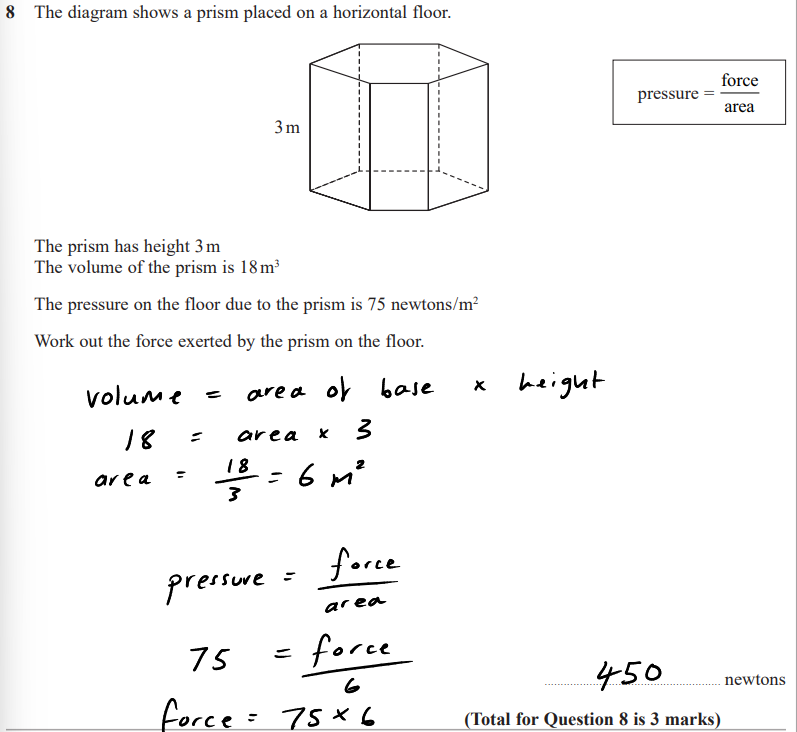 8 The diagram shows a prism placed on a horizontal floor.
pressure = force / area
3 m
The prism has height 3 m
The volume of the prism is 18 m³
The pressure on the floor due to the prism is 75 newtons/m²
Work out the force exerted by the prism on the floor.
volume = area of base × height
18 = area × 3
area = 18/3 = 6 m²
pressure = force / area
75 = force / 6
450 newtons
force = 75 × 6
(Total for Question 8 is 3 marks)